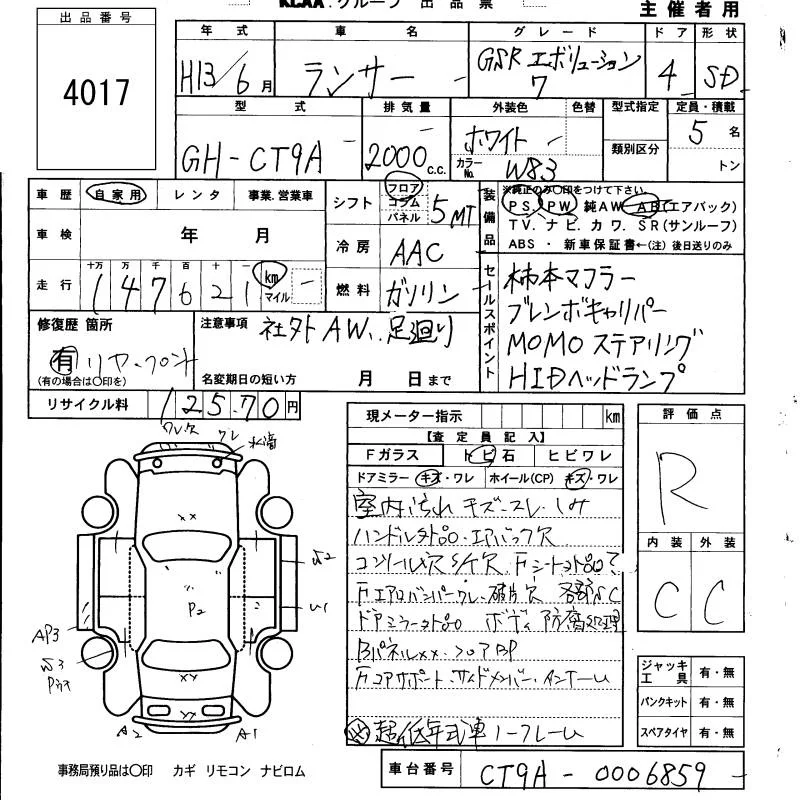 KLAA.グループ 出品票
主催者用
出品番号
4017
年式 車名 グレード ドア 形状
H13/6月 ランサー GSR エボリューション 7 4 SD
型式 排気量 外装色 色替 型式指定 定員・積載
GH-CT9A 2000 c.c. ホワイト カラーNo. W83 類別区分 5名 トン
車歴 自家用 レンタ 事業.営業車
シフト フロア コラム パネル 5MT
装備品
※純正のみ〇印をつけて下さい
PS. PW 純AW AB(エアバック)
TV. ナビ. カワ. SR(サンルーフ)
ABS ・ 新車保証書←(注) 後日送りのみ
車検 年 月
冷房 AAC
走行 十万 万 千 百 十 一
147621 km マイル
燃料 ガソリン
セールスポイント
柿本マフラー
ブレンボキャリパー
MOMOステアリング
HIDヘッドランプ
修復歴 箇所
有 リヤ・フロント
(有の場合は〇印を)
注意事項 社外AW.足廻り
名変期日の短い方 月 日まで
リサイクル料 12570円
ワレ欠 ワレ
P2
AP3
A2 A1
U1
現メーター指示 km
【査定員記入】
Fガラス トビ石 ヒビワレ
ドアミラー キズ・ワレ ホイール(CP) キズ・ワレ
室内汚れ キズ・スレ・シミ
ハンドル外品・エアバック欠
ドアミラー外品 ボディ防腐処理
Bパネルxx・フロアBP
Fコアサポート・サイドメンバー・インナーU
超低年式車
評価点
R
内装 外装
C C
ジャッキ工具 有・無
パンクキット 有・無
スペアタイヤ 有・無
事務局預り品は〇印 カギ リモコン ナビロム
車台番号 CT9A-0006859